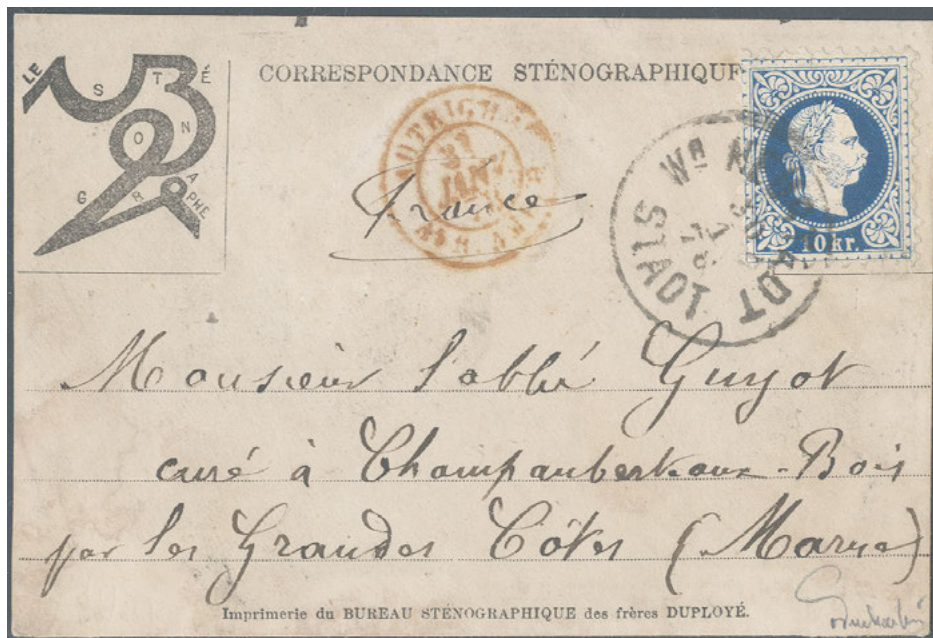 LE STÉNOGRAPHE
CORRESPONDANCE STÉNOGRAPHIQUE
AUTRICHE
31 JANV
France
Wr. NEUSTADT STADT
10 kr.
Monsieur l'abbé Guyot
curé à Champaubert-aux-Bois
par les Grandes Côtes (Marne)
Imprimerie du BUREAU STÉNOGRAPHIQUE des frères DUPLOYÉ.